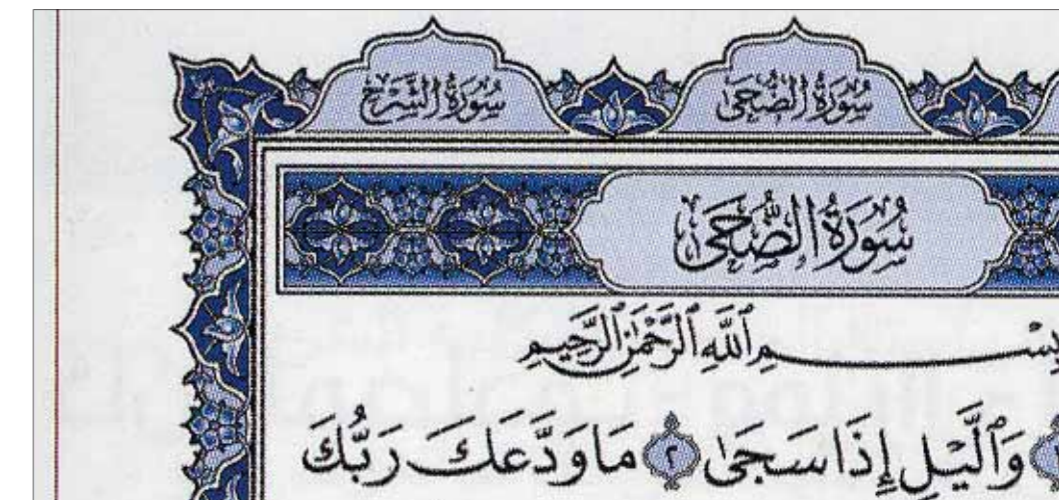 سُورَةُ الضُّحَىٰ سُورَةُ الشَّرْحِ
سُورَةُ الضُّحَىٰ
بِسْمِ ٱللَّهِ ٱلرَّحْمَٰنِ ٱلرَّحِيمِ
وَٱلَّيْلِ إِذَا سَجَىٰ ٢ مَا وَدَّعَكَ رَبُّكَ